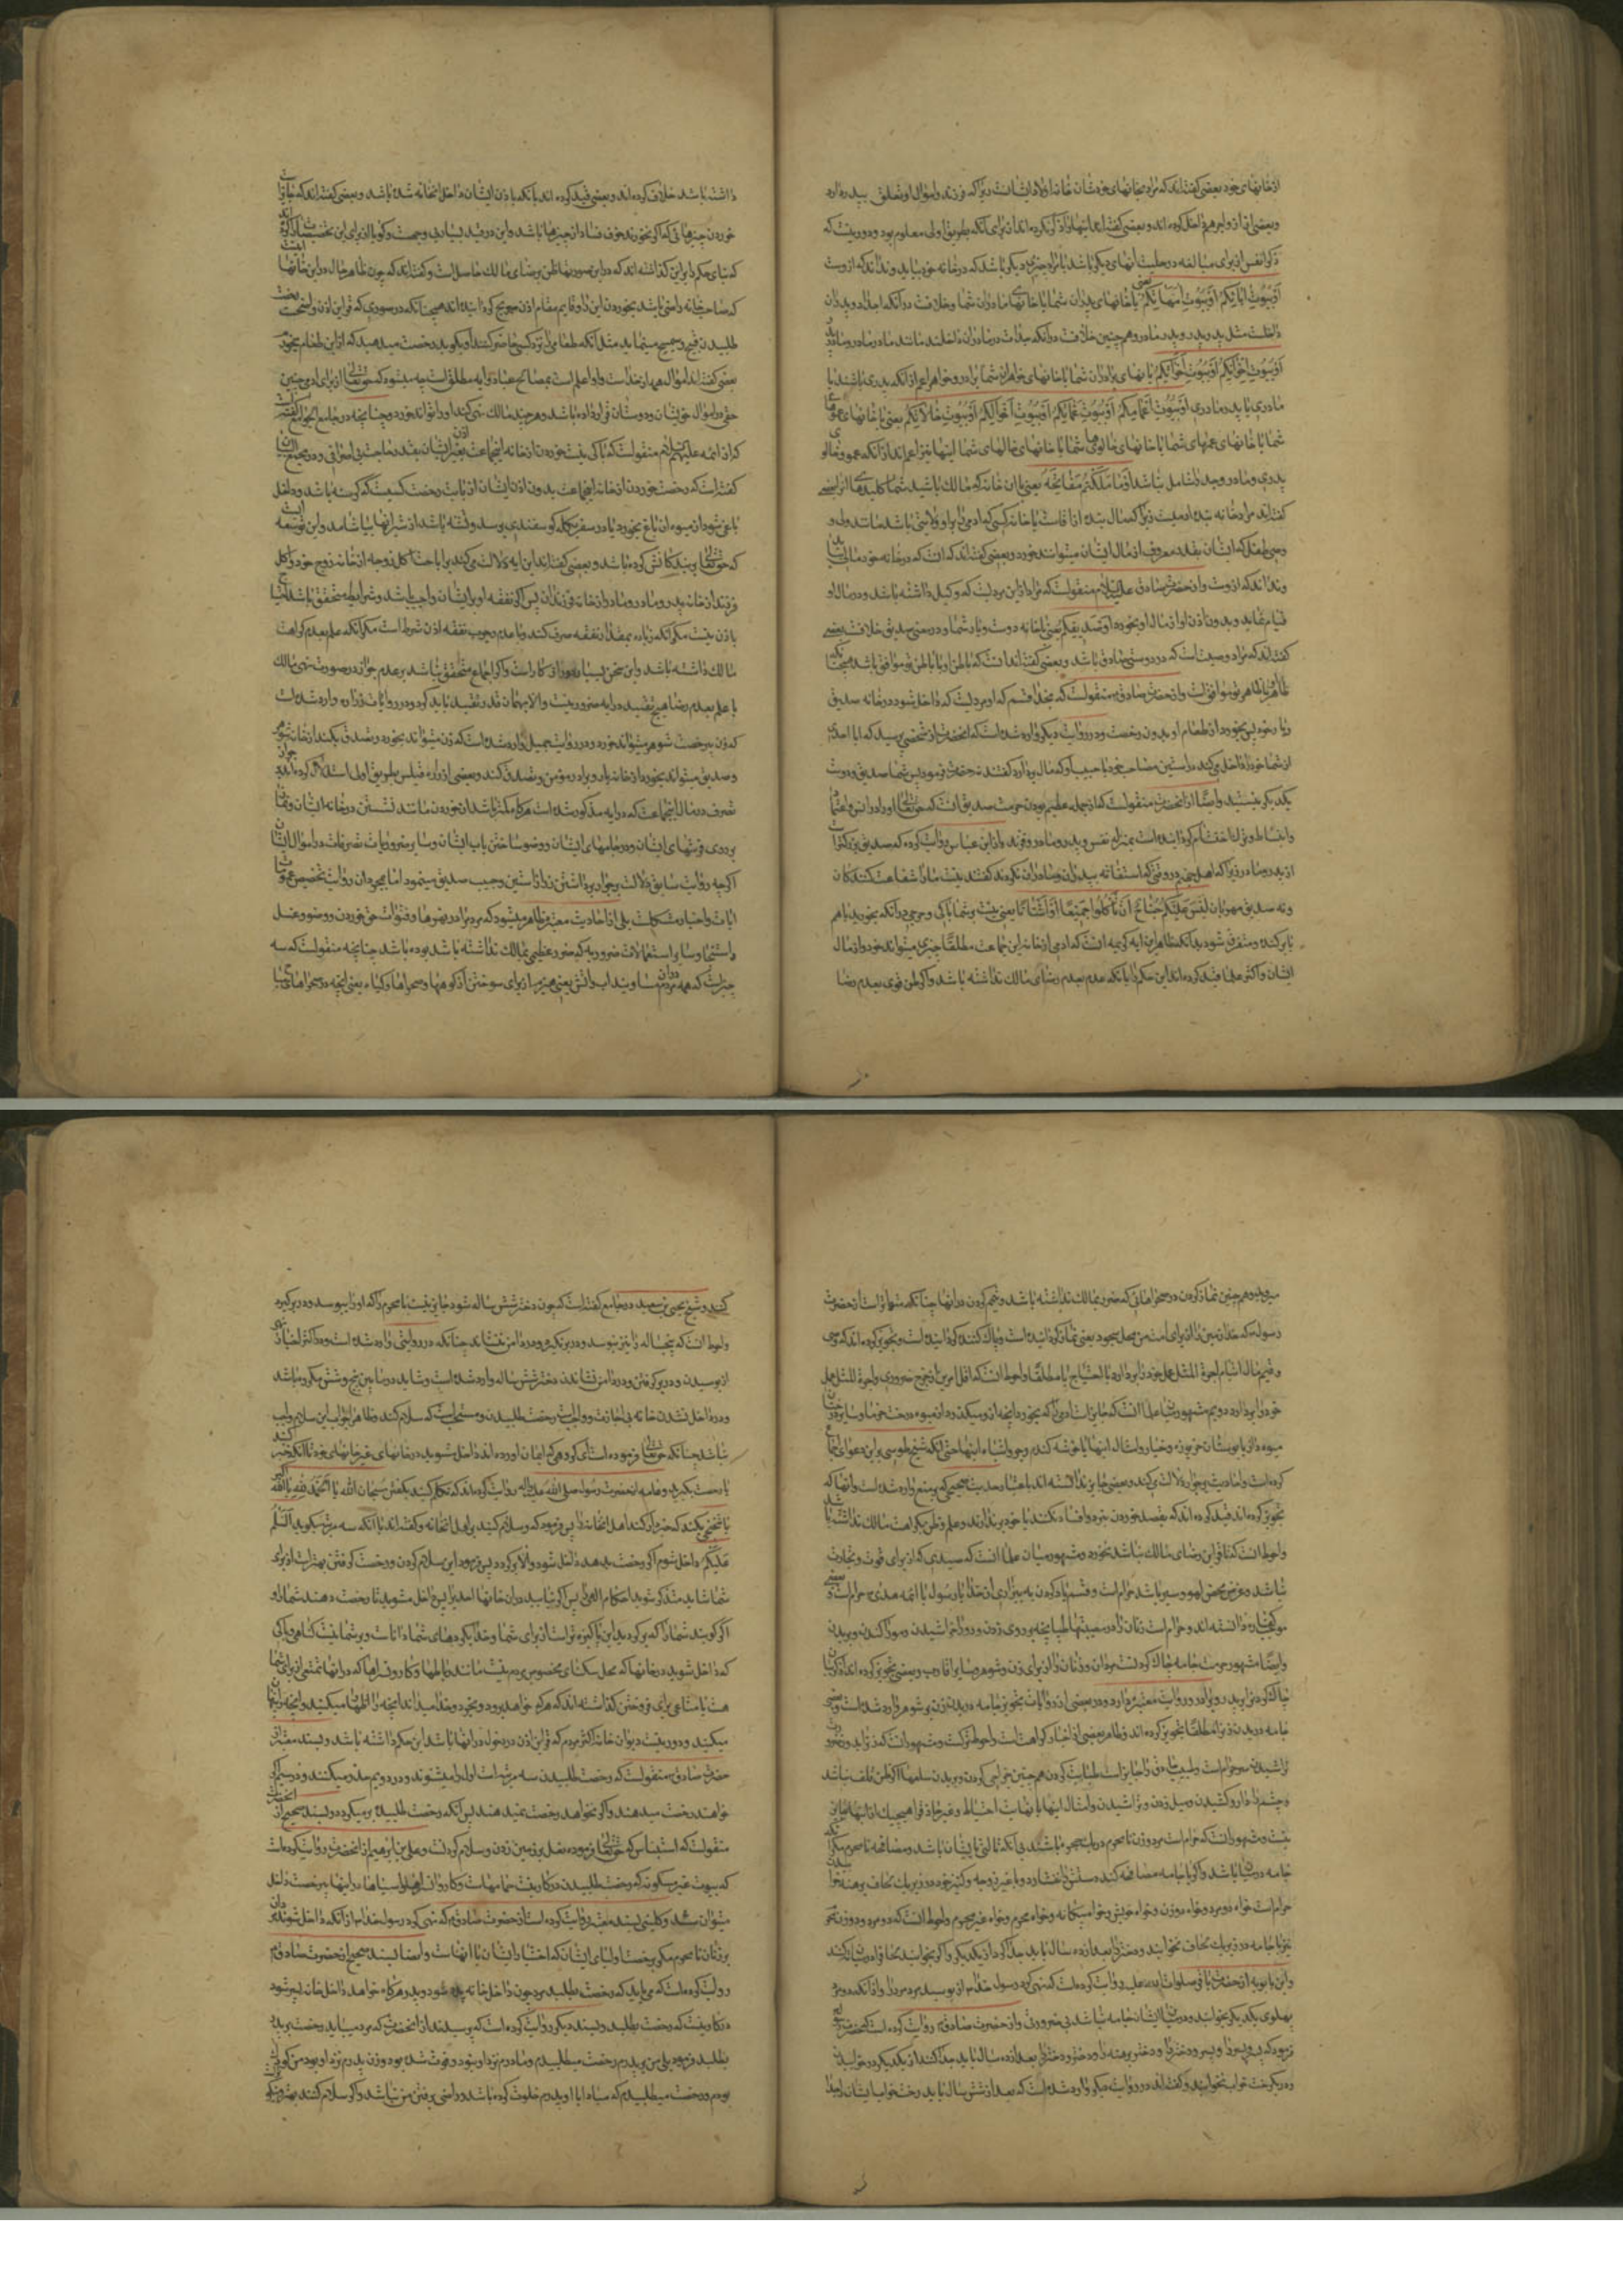 ازخانهای خود بعضی گفته‌اند که مراد بخانهای خودشان خانه اولاد ایشانست زیرا که فرزند و اموال او تعلق بپدر دارد
وبعضی ازواج را هم داخل کرده‌اند وبعضی گفته‌اند اینها را ذکر نکرده‌اند از برای آنکه بطریق اولی معلوم بود ودور نیست که
ذکر انفس از برای مبالغه در حلیت آنهای دیگر باشد یا مراد چیزی دیگر باشد که در خانه خود بیابد و نداند که از اوست
أَوْ بُيُوتِ آبَائِكُمْ أَوْ بُيُوتِ أُمَّهَاتِكُمْ یا خانهای پدران شما یا خانهای مادران شما وخلافست در آنکه اجداد و پدران
داخلند مثل پدر پدر و پدر مادر وهم چنین خلافست در آنکه جدات در مادران داخلند مانند مادر مادر و مادر پدر
أَوْ بُيُوتِ إِخْوَانِكُمْ أَوْ بُيُوتِ أَخَوَاتِكُمْ یا خانهای برادران شما یا خانهای خواهران شما برادر و خواهر اعم از آنکه پدری باشند یا
مادری یا پدر مادری أَوْ بُيُوتِ أَعْمَامِكُمْ أَوْ بُيُوتِ عَمَّاتِكُمْ أَوْ بُيُوتِ أَخْوَالِكُمْ أَوْ بُيُوتِ خَالَاتِكُمْ یعنی یا خانهای عموهای
شما یا خانهای عمهای شما یا خانهای خالوهای شما یا خانهای خالهای شما اینها نیز اعم‌اند از آنکه عمو و خالوی
پدری ومادر وجد را شامل باشد أَوْ مَا مَلَكْتُمْ مَفَاتِحَهُ یعنی یا آن خانه که مالک باشید شما کلیدهای آنرا بعضی
گفته‌اند مراد خانه بنده
وصی طفل که ایشان بقدر معروف از مال ایشان میتوانند خورد وبعضی گفته‌اند که آنست که در خانه خود مالی بیابد
ونداند که از اوست واز حضرت صادق علیه السلام منقولست که مراد از این مردیست که وکیل داشته باشد و در مال او
قیام نماید وبدون اذن او از مال او بخورد أَوْ صَدِيقِكُمْ یعنی یا خانه دوست ویار شما ودر معنی صدیق خلافست بعضی
گفته‌اند که مراد دوستیست که در دوستی صادق باشد وبعضی گفته‌اند آنست که باطن او با باطن تو موافق باشد همچنانکه
ظاهر او با ظاهر تو موافقست واز حضرت صادق منقولست که بخدا قسم که او مردیست که داخل شود در خانه صدیق
خود پس بخورد از طعام او بدون رخصت ودر روایت دیگر وارد شده است که آنحضرت از شخصی پرسید که آیا احدی
از شما خود را داخل میکند در آستین مصاحب خود یا جیب او که مال بردارد گفتند نه حضرت فرمود پس شما صدیق ودوست
یکدیگر نیستید وایضا از آنحضرت منقولست که از جمله عظیم بودن حرمت صدیق آنست که حق تعالی او را در انس واعتماد
وانبساط
از پدر ومادر زیرا که اهل جهنم در وقتی که استغاثه
ونه صدیق مهربان لَيْسَ عَلَيْكُمْ جُنَاحٌ أَنْ تَأْكُلُوا جَمِيعًا أَوْ أَشْتَاتًا یعنی نیست بر شما باکی وحرجی در آنکه بخورید باهم
یا پراکنده ومتفرق شود بدانکه ظاهر این آیه کریمه آنست که آدمی از خانه این جماعت مطلقا چیزی میتواند خورد از مال
ایشان واکثر علما قید کرده‌اند این حکم را با آنکه علم بعدم رضای مالک نداشته باشد واگر ظن قوی بعدم رضا
داشته باشد خلاف کرده‌اند وبعضی قید کرده‌اند بآنکه باذن ایشان داخل آنخانه شده باشد وبعضی گفته‌اند که
خوردن چیزهائی که اگر نخورند خوف فساد آن چیزها باشد واین دو قید بسیار بی وجهست
که بنای حکم را براین گذاشته‌اند که در این صورتها ظن برضای مالک حاصل است وگفته‌اند که چون ظاهر حال در این خانها
که صاحب خانه راضی باشد بخوردن این را قایم مقام اذن صریح گردانیده‌اند همچنانکه در صورتی که قراین اذن
طلبیدن قبیح مینماید مثل آنکه طعامی را نزد کسی حاضر کنند او بگوید رخصت میدهید که از این طعام بخورم
بعضی گفته‌اند اموال همه از خداست واو اعلم است بمصالح عباد وآیه مطلق است چه میشود که حق تعالی از برای آدمی چنین
حقی در اموال خویشان ودوستان قرار داده باشد وهر چند مالک نهی کند او را تواند خورد وچنانچه در جامع الجوامع گفته است
که از ائمه علیهم السلام منقولست که باکی نیست خوردن از خانه این جماعت بغیر اذن ایشان بقدر حاجت بی اسراف ودر مجمع البیان
گفته است که رخصت خوردن از خانه این جماعت بدون اذن ایشان از بابت رخصت کسیست که گرسنه باشد وداخل
باغی شود از میوه آن باغ بخورد یا در سفر بگله گوسفندی برسد وتشنه باشد از شیر آنها بیاشامد واین توسعه ایست
که حق تعالی بر بندگانش کرده باشد وبعضی گفته‌اند این آیه دلالت میکند بر اباحت اکل زوجه از خانه زوج خود واکل
فرزند از خانه پدر ومادر ومادر از خانه فرزندان پس اگر نفقه او بر ایشان واجب باشد وشرایطه متحقق باشد احتیاج
باذن نیست مگر آنکه زیاده بر مقدار نفقه صرف کند وبا عدم وجوب نفقه اذن شرط است مگر آنکه علم بعدم کراهت
مالک داشته باشد واین سخن بسیار دور از کار است واگر اجماع متحقق نباشد بر عدم جواز در صورت نهی مالک
یا علم بعدم رضا هیچ تقیید در آیه ضرور نیست والا بهمان قدر تقیید باید کرد ودر روایات زراره وارد شده است
که زن بی رخصت شوهر میتواند خورد ودر روایت جمیل وارد شده است که زن میتواند بخورد وتصدق بکند از خانه شوهر
وصدیق میتواند بخورد از خانه یار وبرادر مؤمن وتصدق کند وبعضی از
تصرف در مال این جماعت که در آیه مذکور شده است هرگاه کمتر باشد از خوردن مانند نشستن در خانه ایشان ونماز
بر روی فرشهای ایشان ودر جامهای ایشان ووضو ساختن بآب ایشان وسایر ضروریات تصرفات در اموال ایشان
اگرچه روایت سابق دلالت بر جواز برداشتن زر از آستین وجیب صدیق مینمود اما بمجرد آن روایت تخصیص عمومات
آیات واخبار مشکلست بلی از احادیث معتبره ظاهر میشود که مردم را در نهرها وقنوات حق خوردن ووضو وغسل
واستنجا وسایر استعمالات ضروریه که ضرر عظیمی بمالک نداشته باشد بوده باشد چنانچه منقولست که سه
چیز است که همه مردم در آن مساویند آب وآتش یعنی هیزم از برای سوختن از کوهها وصحراها وگیاه یعنی آنچه در صحراهای مباح
میروید وهم چنین نماز کردن در صحراهائی که ضرر بمالک نداشته باشد وتیمم کردن در آنها چنانکه متواتر است از حضرت
رسول ص که خدا زمین را از برای امت من محل سجود یعنی نماز گردانیده است وپاک کننده گردانیده است وتجویز کرده‌اند که وصی
وقیم مال ایتام اجرة المثل عمل خود را بردارد با احتیاج یا مطلقا واحوط آنست که اقل امرین از خرج ضروری واجرة المثل عمل
خود را بردارد دویم مشهور میان علما آنست که جایز است آدمی را که بخورد از آنچه از او میگذرد از میوه درخت خرما وسایر درختان
میوه دار یا بوستان خربزه وخیار وامثال اینها یا خوشه گندم وجو واشباه اینها حتی آنکه شیخ طوسی بر این دعوای اجماع
کرده است واحادیث بر جواز دلالت میکند وبعضی جایز ندانسته‌اند باعتبار حدیث صحیحی که بر منع وارد شده است وآنها که
تجویز کرده‌اند قید کرده‌اند که بقصد خوردن نرود وافساد نکند وبا خود برندارند وعلم وظن بکراهت مالک نداشته باشد
واحوط آنست که تا قراین رضای مالک نباشد نخورد ومشهور میان علما آنست که صیدی که از برای قوت وتجارت
نباشد وغرض محض لهو وسیر باشد حرام است وقسم یاد کردن به بیزاری از خدا یا رسول یا ائمه هدی حرام است وبعضی
موجب کفاره دانسته‌اند وحرام است زنان را در مصیبتها طپانچه بر روی زدن ورو را خراشیدن ومو را کندن وبریدن
وایضا مشهور حرمت جامه چاک کردنست مردان وزنان را از برای زن وشوهر وسایر اقارب وبعضی تجویز کرده‌اند
چاک کردن را برای پدر وبرادر ودر روایت معتبره وارد ودر بعضی از روایات تجویز جامه دریدن زن بر شوهر وارد شده است وبعضی
جامه دریدن زن را مطلقا تجویز کرده‌اند وظاهر بعضی از اخبار کراهت است واحوط ترکست
تراشیدن
وچشم را دارو کشیدن ومیل زدن وتراشیدن وامثال اینها با نهایت احتیاط
نیست ومشهور آنست که حرام است مرد وزن نامحرم در یک حجره باشند بی آنکه ثالثی با ایشان باشد ومصافحه نامحرم مگر آنکه
جامه در میان باشد واگر با جامه مصافحه کند دستش را نفشارد وبا غیر زوجه وکنیز خود در زیر یک لحاف برهنه خوابیدن
حرام است خواه دو مرد وخواه دو زن وخواه خویش وخواه بیگانه وخواه محرم وخواه غیر محرم واحوط آنست که دو مرد ودو زن
نیز با جامه در زیر یک لحاف نخوابند ودختر را بعد از ده سال باید جدا کرد از یکدیگر واگر بخوابند لحاف را در میان کنند
وابن بابویه از حضرت باقر صلوات الله علیه روایت کرده است که نهی کرد رسول خدا ص از بوسیدن مرد مرد را واز آنکه دو مرد
پهلوی یکدیگر بخوابند ودر میان ایشان جامه نباشد بی ضرورتی واز حضرت صادق ع روایت کرده است که حضرت رسول
فرمود که پسر و پسر را وپسر ودختر را ودختر وپسر را ودختر ودختر را بعد از ده سال باید جدا کنند از یکدیگر در خوابیدن
در یک رخت خواب نخوابند وگفته‌اند در روایت دیگر وارد شده است که بعد از شش سال باید رختخواب ایشان را جدا
کنند وشیخ یحیی بن سعید در جامع گفته است که چون دختر شش ساله شود جایز نیست نامحرم را که او را ببوسد ودر بر گیرد
واحوط آنست که پنجساله را نیز نبوسد ودر بر نگیرد ودر دامن ننشاند چنانکه در روایتی وارد شده است ودر اکثر اخبار نهی
از بوسیدن ودر بر گرفتن ودر دامن نشاندن دختر شش ساله وارد شده است وشاید در مابین پنج وشش مکروه باشد
ودر داخل شدن خانه بی اجازت واجبست رخصت طلبیدن ومستحب است که سلام کند وظاهرا جواب این سلام واجب
نباشد چنانکه حق تعالی فرموده است ای گروهی که ایمان آورده‌اند داخل مشوید در خانهای غیر خانهای خود تا آنکه خبر کنید
یا رخصت بگیرید وعامه از حضرت رسول صلی الله علیه وآله روایت کرده‌اند که تکلم کنید بگفتن سبحان الله یا الحمد لله یا الله اکبر
یا تنحنحی بکند که خبردار کند اهل آنخانه را پس فرمود که وسلام کنید بر اهل آنخانه وگفته‌اند با آنکه سه مرتبه بگوید السلام
علیکم داخل شوم اگر رخصت بدهد داخل شود والا برگردد پس فرمود این سلام کردن ورخصت گرفتن بهتر است از برای
شما شاید متذکر شوید احکام الهی را پس اگر نیابید در آن خانها احدی را پس داخل مشوید تا رخصت دهند شما را و
اگر گویند شما را که برگردید این پاکیزه‌تر است از برای شما وخدا بکردهای شما داناست وبر شما نیست گناهی وباکی
که داخل شوید در خانها که محل سکنای مخصوص مردم نیست مانند رباطها وکاروانسراها که در آنها تمتعی از برای شما
هست یا متاعی برای فروختن گذاشته‌اند که هر که خواهد برود وبخرد وخدا میداند آنچه را اظهار میکنید وآنچه را پنهان
میکنید ودور نیست دیوان خانه اکثر مردم که قراین اذن در دخول در آنها باشد این حکم داشته باشد وبسند معتبر از
حضرت صادق ع منقولست که رخصت طلبیدن سه مرتبه است اول را میشنوند ودر دویم حذر میکنند ودر سیم اگر
خواهند رخصت میدهند واگر نخواهند رخصت نمیدهند پس آنکه رخصت طلبیده برمیگردد وبسند صحیح از آنحضرت
منقولست که استیناس که حق تعالی فرموده نعل بر زمین زدن وسلام کردنست وعلی بن ابراهیم از آنحضرت روایت کرده است
که بیوت غیر مسکونه که رخصت طلبیدن در کار نیست حمامهاست وکاروانسراها وآسیاها در اینها بی رخصت داخل
میتوان شد وکلینی بسند معتبر روایت کرده است از حضرت صادق ع که نهی کرد رسول خدا ص از آنکه داخل شوند مردان
بر زنان نامحرم مگر برخصت اولیای ایشان که اختیار ایشان با آنهاست وایضا بسند صحیح از حضرت صادق ع
روایت کرده است که میباید که رخصت طلبد مرد چون داخل خانه پدر شود وپدر هرگاه خواهد داخل خانه پسر شود
در کار نیست که رخصت طلبد وبسند دیگر روایت کرده است که پرسیدند از آنحضرت که مرد میباید رخصت بر پدر
بطلبد فرمود بلی من بر پدرم رخصت میطلبیدم ومادرم نزد او نبود وفوت شده بود وزن پدرم نزد او بود من کودک
بودم ورخصت میطلبیدم که مبادا با او پدرم خلوت کرده باشد وراضی برفتن من نباشد واگر سلام کنند بهتر ونیکوتر